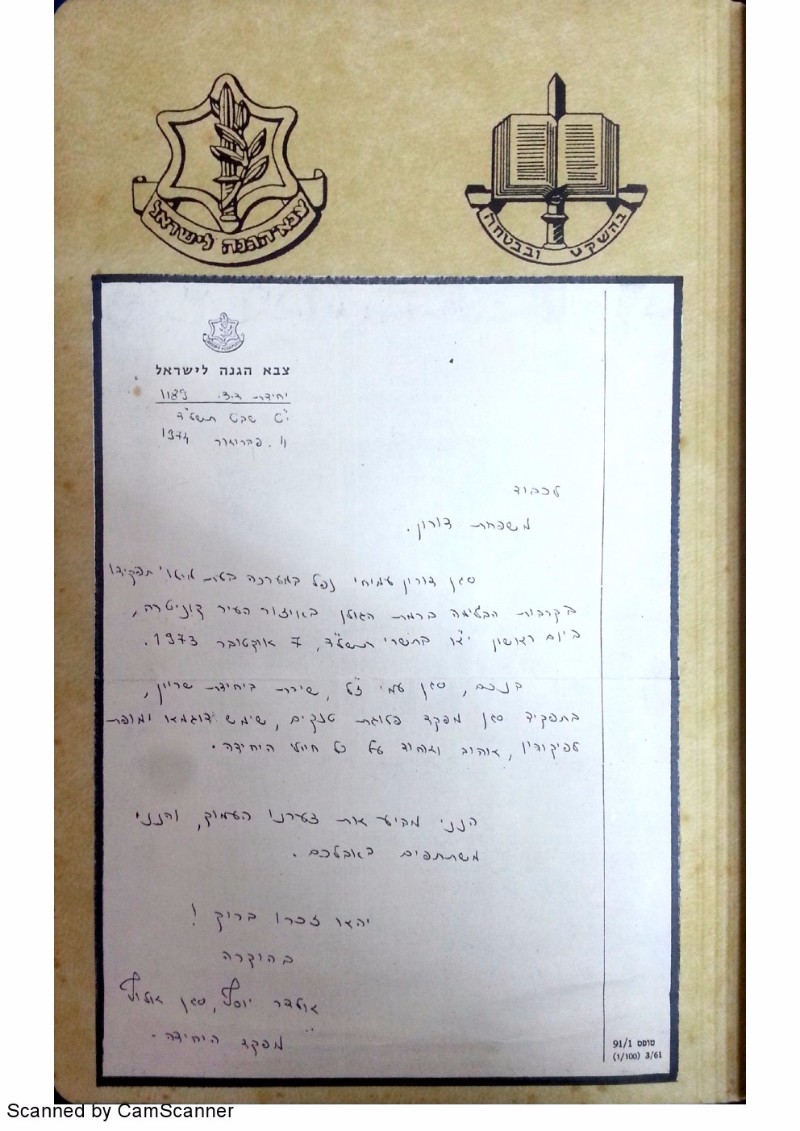 צבא הגנה לישראל
בהשקט ובבטחה
צבא הגנה לישראל
יחידת ד.צ. 1189
י"ט שבט תשל"ד
11. פברואר 1974
לכבוד
משפחת דורון.
סגן דורון עמיחי נפל במערכה בעת מילוי תפקידו
בקרבות הבלימה ברמת הגולן באיזור העיר קוניטרה,
ביום ראשון י"א בתשרי תשל"ד, 7 אוקטובר 1973.
בנכם, סגן עמי ז"ל, שירת ביחידת שריון,
בתפקיד סגן מפקד פלוגת טנקים, שימש דוגמא ומופת
לפיקודיו, אהוב ואהוד על כל חיילי היחידה.
הנני מביע את צערנו העמוק, והננו
משתתפים באבלכם.
יהא זכרו ברוך !
בהוקרה
אלדר יוסף, סגן אלוף
מפקד היחידה -
טופס 91/1
(1/100) 3/61
Scanned by CamScanner